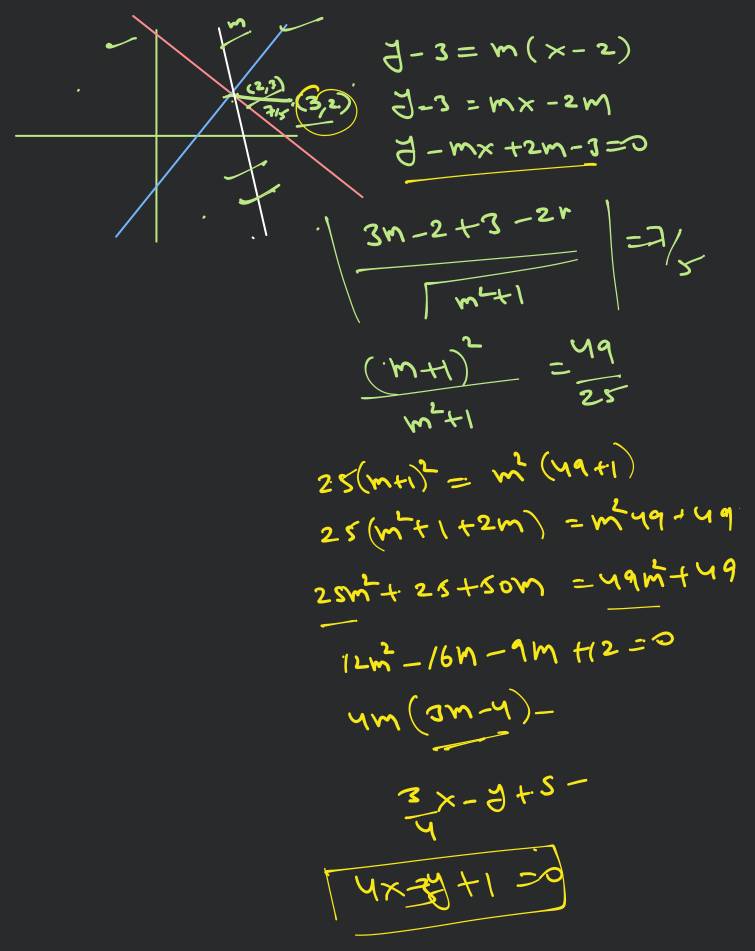 m
(2,3)
7/5
(3,2)
y-3=m(x-2)
y-3=mx-2m
y-mx+2m-3=0
|3m-2+3-2m/√m²+1|=7/5
(m+1)²/m²+1=49/25
25(m+1)²=m²(49+1)
25(m²+1+2m)=m²49+49
25m²+25+50m=49m²+49
12m²-16m-9m+12=0
4m(3m-4)-
3/4x-y+5-
4x-3y+1=0